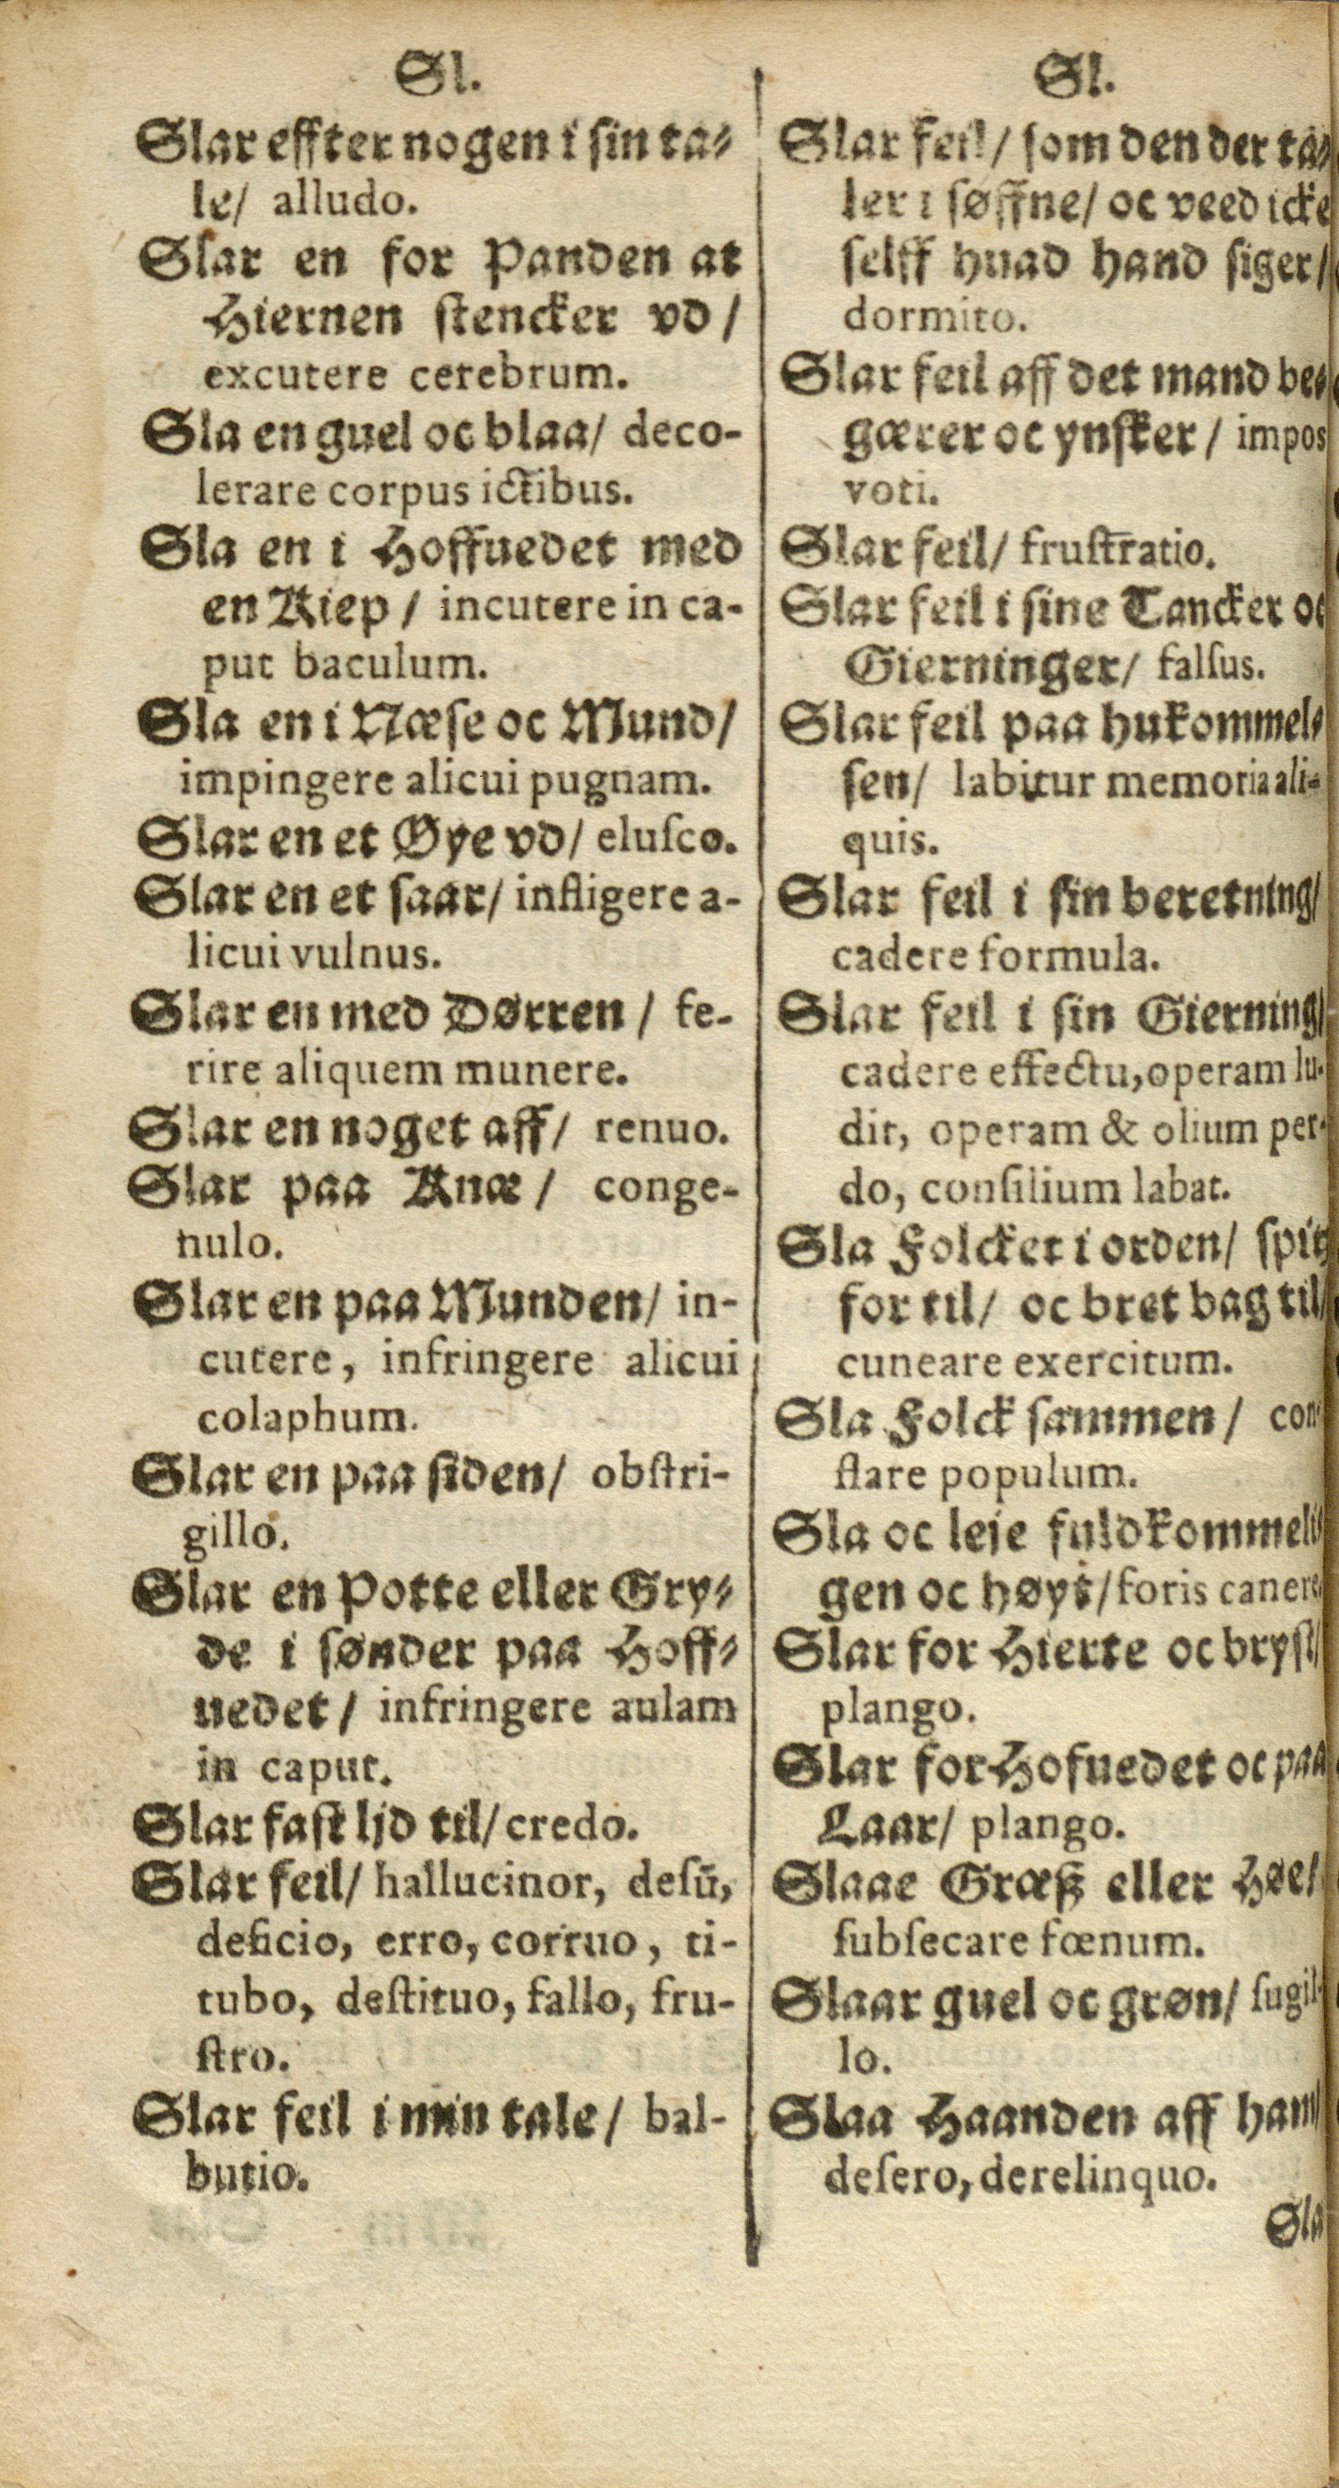 Sl.
Slar effter nogen i sin ta-
le/ alludo.
Slar en for Panden at
Hiernen stencker vd/
excutere cerebrum.
Sla en guel oc blaa/ deco-
lerare corpus ictibus.
Sla en i Hoffuedet med
en Kiep/ incutere in ca-
put baculum.
Sla en i Næse oc Mund/
impingere alicui pugnam.
Slar en et Øye vd/ elusco.
Slar en et saar/ infligere a-
licui vulnus.
Slar en med Dørren/ fe-
rire aliquem munere.
Slar en noget aff/ renuo.
Slar paa Knæ/ conge-
nulo.
Slar en paa Munden/ in-
cutere, infringere alicui
colaphum.
Slar en paa siden/ obstri-
gillo.
Slar en Potte eller Gry-
de i sønder paa Hoff-
uedet/ infringere aulam
in caput.
Slar fast lid til/ credo.
Slar feil/ hallucinor, desū,
deficio, erro, corruo, ti-
tubo, destituo, fallo, fru-
stro.
Slar feil i min tale/ bal-
butio.
Sl.
Slar feil/ som den der ta-
ler i søffne/ oc veed icke
selff huad hand siger/
dormito.
Slar feil aff det mand be-
gærer oc ynsker/ impos
voti.
Slar feil/ frustratio.
Slar feil i sine Tancker oc
Gierninger/ falsus.
Slar feil paa hukommel-
sen/ labitur memoria ali-
quis.
Slar feil i sin beretning/
cadere formula.
Slar feil i sin Gierning/
cadere effectu, operam lu-
dit, operam & olium per-
do, consilium labat.
Sla Folcket i orden/ spitz
for til/ oc bret bag til/
cuneare exercitum.
Sla Folck sammen/ con-
flare populum.
Sla oc leje fuldkommeli-
gen oc høyt/ foris canere.
Slar for Hierte oc bryst/
plango.
Slar for Hofuedet oc paa
Laar/ plango.
Slaae Græß eller Høe/
subsecare fœnum.
Slaar guel oc grøn/ sugil-
lo.
Slaa Haanden aff ham/
desero, derelinquo.
Sla